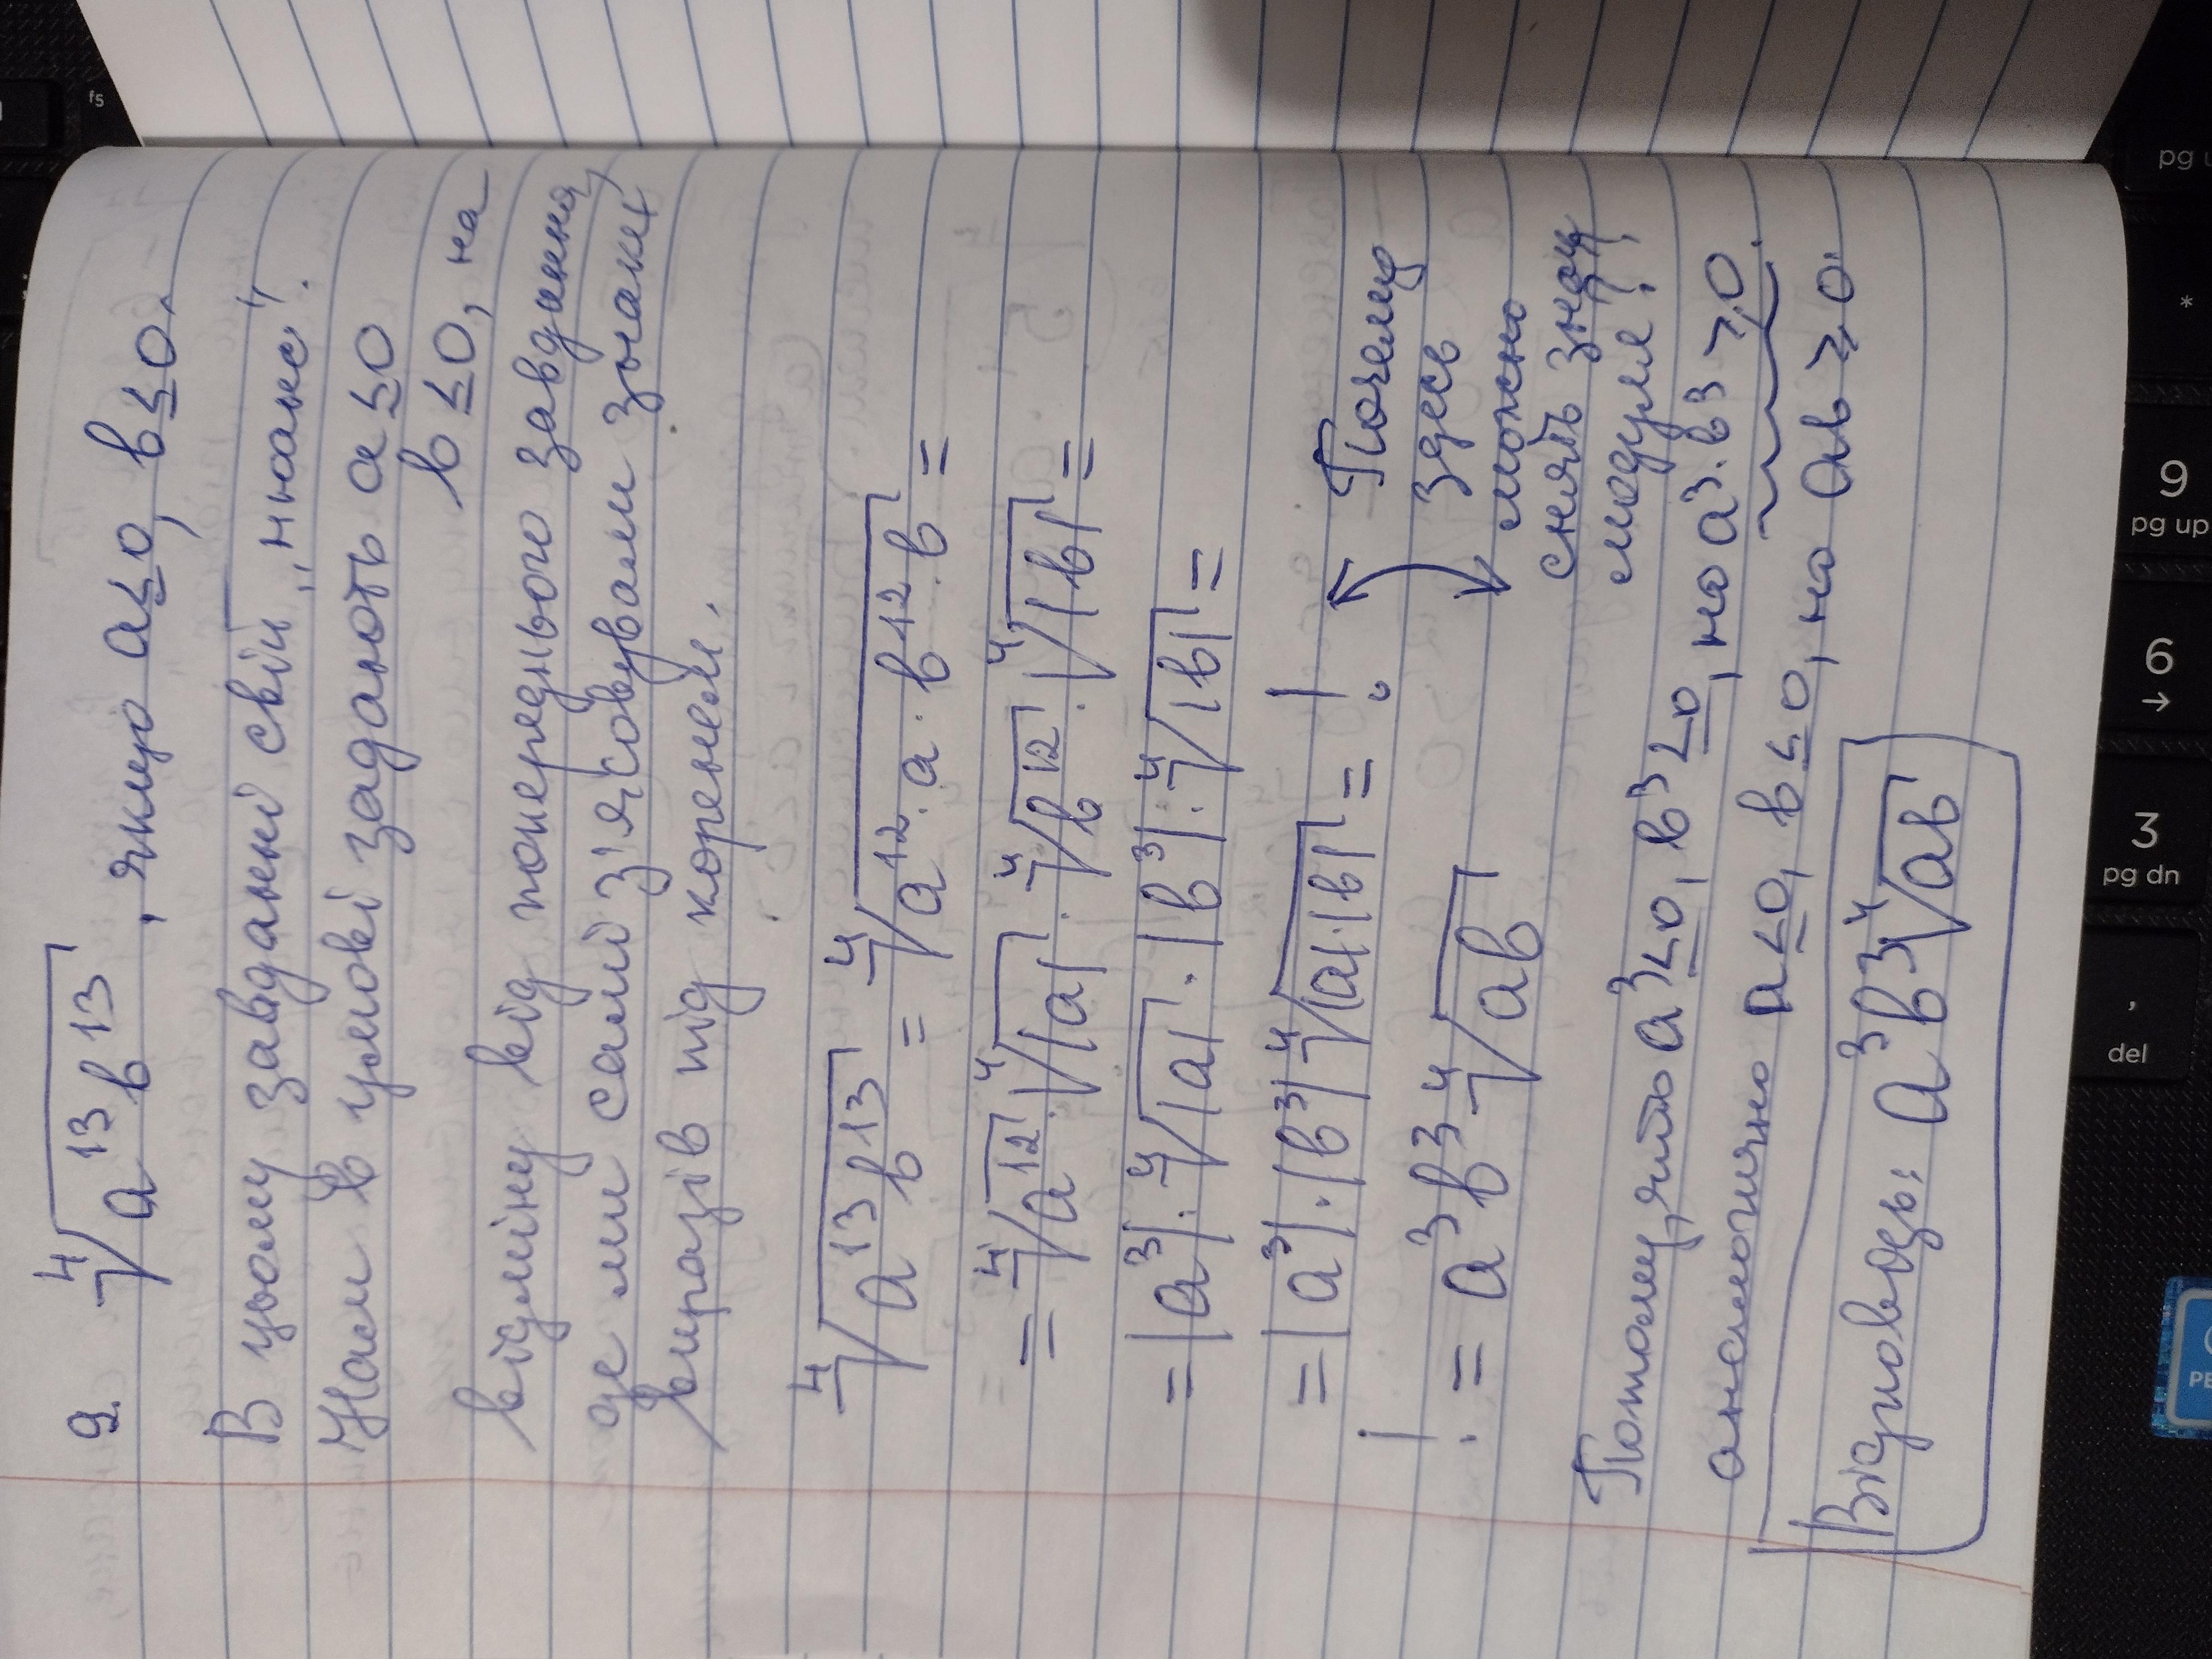 9. ⁴√(a¹³в¹³), якщо а≤0, в≤0.
В цьому завданні свій „нюанс".
Нам в умові задають а≤0
в≤0, на
відміну від попереднього завдання,
де ми самі з'ясовували знаки
виразів під коренем.
⁴√(a¹³в¹³) = ⁴√(a¹²·a·в¹²·в) =
= ⁴√(a¹²)·⁴√|a|·⁴√(в¹²)·⁴√|в| =
= |a³|·⁴√|a|·|в³|·⁴√|в| =
= |a³|·|в³| ⁴√(|a|·|в|) = !
! = a³в³ ⁴√(ав)
Почему
здесь
можно
снять знак
модуля?
Потому, что а³≤0, в³≤0, но а³·в³≥0.
аналогично а≤0, в≤0, но ав≥0.
Відповідь: а³в³ ⁴√(ав)
fs
pg
*
9
pg up
6
↓
3
pg dn
,
del